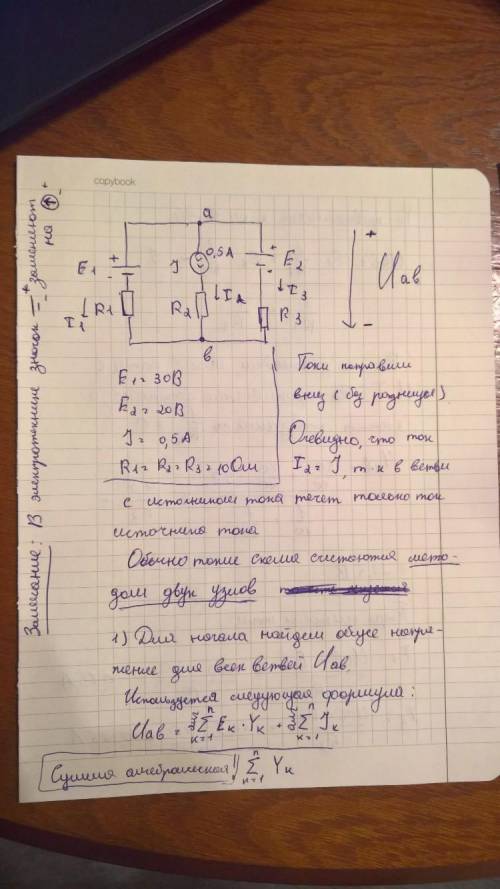 copybook
Замечание: В электротехнике значок заменяют на
a
+
E1
-
J
0,5А
+
E2
-
I1
R1
R2
I2
I3
R3
в
+
Uав
-
E1 = 30В
E2 = 20В
J = 0,5А
R1 = R2 = R3 = 10 Ом
Токи направили
вниз (без разницы)
Очевидно, что ток
I2 = J, т к в ветви
с источником тока течет только ток
источника тока
Обычно такие схемы считаются мето-
дом двух узлов
1) Для начала найдем общее напря-
жение для всех ветвей Uав
Используется следующая формула:
Uав = Σ Ek · Yk + Σ Jk
n
k=1
n
k=1
Сумма алгебраическая!!
n
Σ Yk
k=1